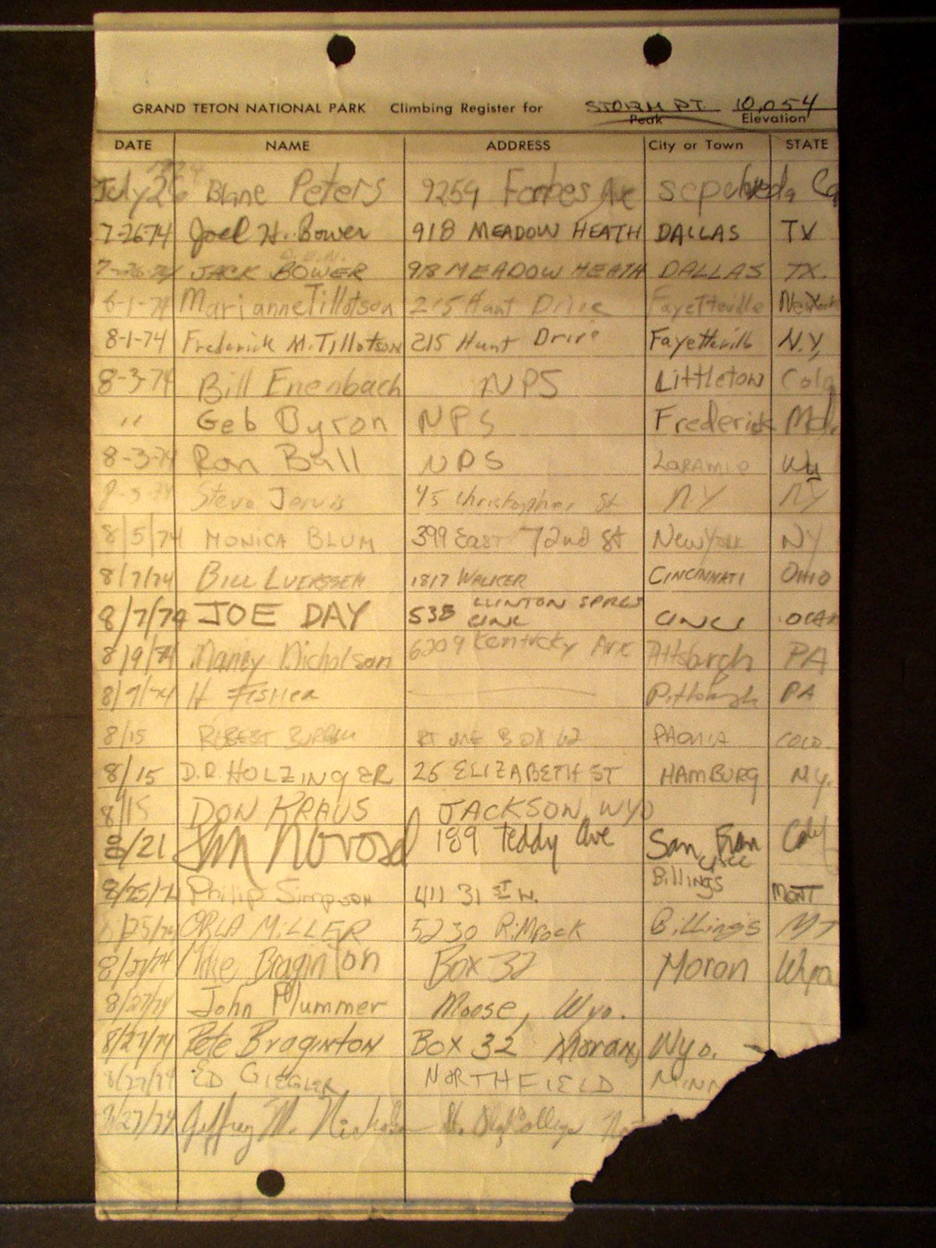 GRAND TETON NATIONAL PARK Climbing Register for STORM PT. 10,054
Peak Elevation
DATE NAME ADDRESS City or Town STATE
1974
July 26 Blane Peters 9259 Forbes Ave Sepulveda Ca
7-26-74 Joel H. Bower 918 MEADOW HEATH DALLAS TX
7-26-74 JACK BOWER 918 MEADOW HEATH DALLAS TX.
8-1-74 Marianne Tillotson 215 Hunt Drive Fayetteville New York
8-1-74 Frederick M. Tillotson 215 Hunt Drive Fayetteville N.Y.
8-3-74 Bill Enenbach NPS Littleton Colo
" Geb Byron NPS Frederick Md.
8-3-74 Ron Ball NPS LARAMIE Wy
Steve Jervis 45 Christopher St NY NY
8/5/74 MONICA BLUM 399 East 72nd St New York NY
8/7/74 BILL LUERSSEN 1817 WALKER CINCINNATI OHIO
8/7/74 JOE DAY 538 CLINTON SPRGS
CINC CINCI
8/9/74 Nancy Nicholson 6209 Kentucky Ave Pittsburgh PA
8/9/74 H FISHER Pittsburgh PA
8/15 ROBERT RT ONE BOX 62 PAONIA COLO.
8/15 D.D. HOLZINGER 26 ELIZABETH ST HAMBURG N.Y.
8/15 DON KRAUS JACKSON WYO
8/21 189 Teddy Ave San Francisco Calif
8/25/74 Philip Simpson 411 31 ST W. Billings MONT
8/25/74 ORLA MILLER 5230 Rimrock Billings MT
8/27/74 Mike Braginton Box 32 Moran Wyo
8/27/74 John Plummer Moose, Wyo.
8/27/74 Pete Braginton Box 32 Moran, Wyo.
8/27/74 ED GIEGLER NORTHFIELD MINN
8/27/74 Jeffrey M. St. Olaf College